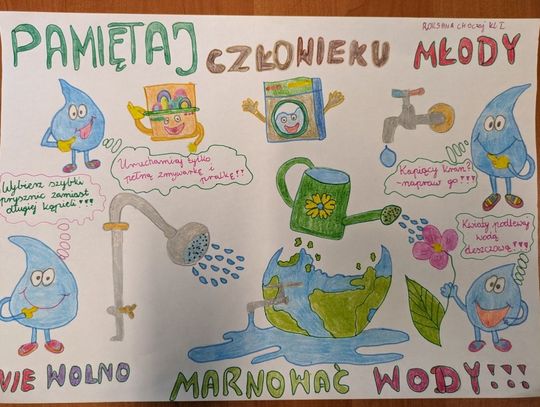 ROKSANA CHOCZEJ KL I
PAMIĘTAJ CZŁOWIEKU MŁODY
Uruchamiaj tylko
pełną zmywarkę i
pralkę!!
Kapiący kran?
-napraw go!!!
Wybierz szybki
prysznic zamiast
długiej kąpieli!!!
Kwiaty podlewaj
wodą
deszczową!!!
NIE WOLNO MARNOWAĆ WODY!!!